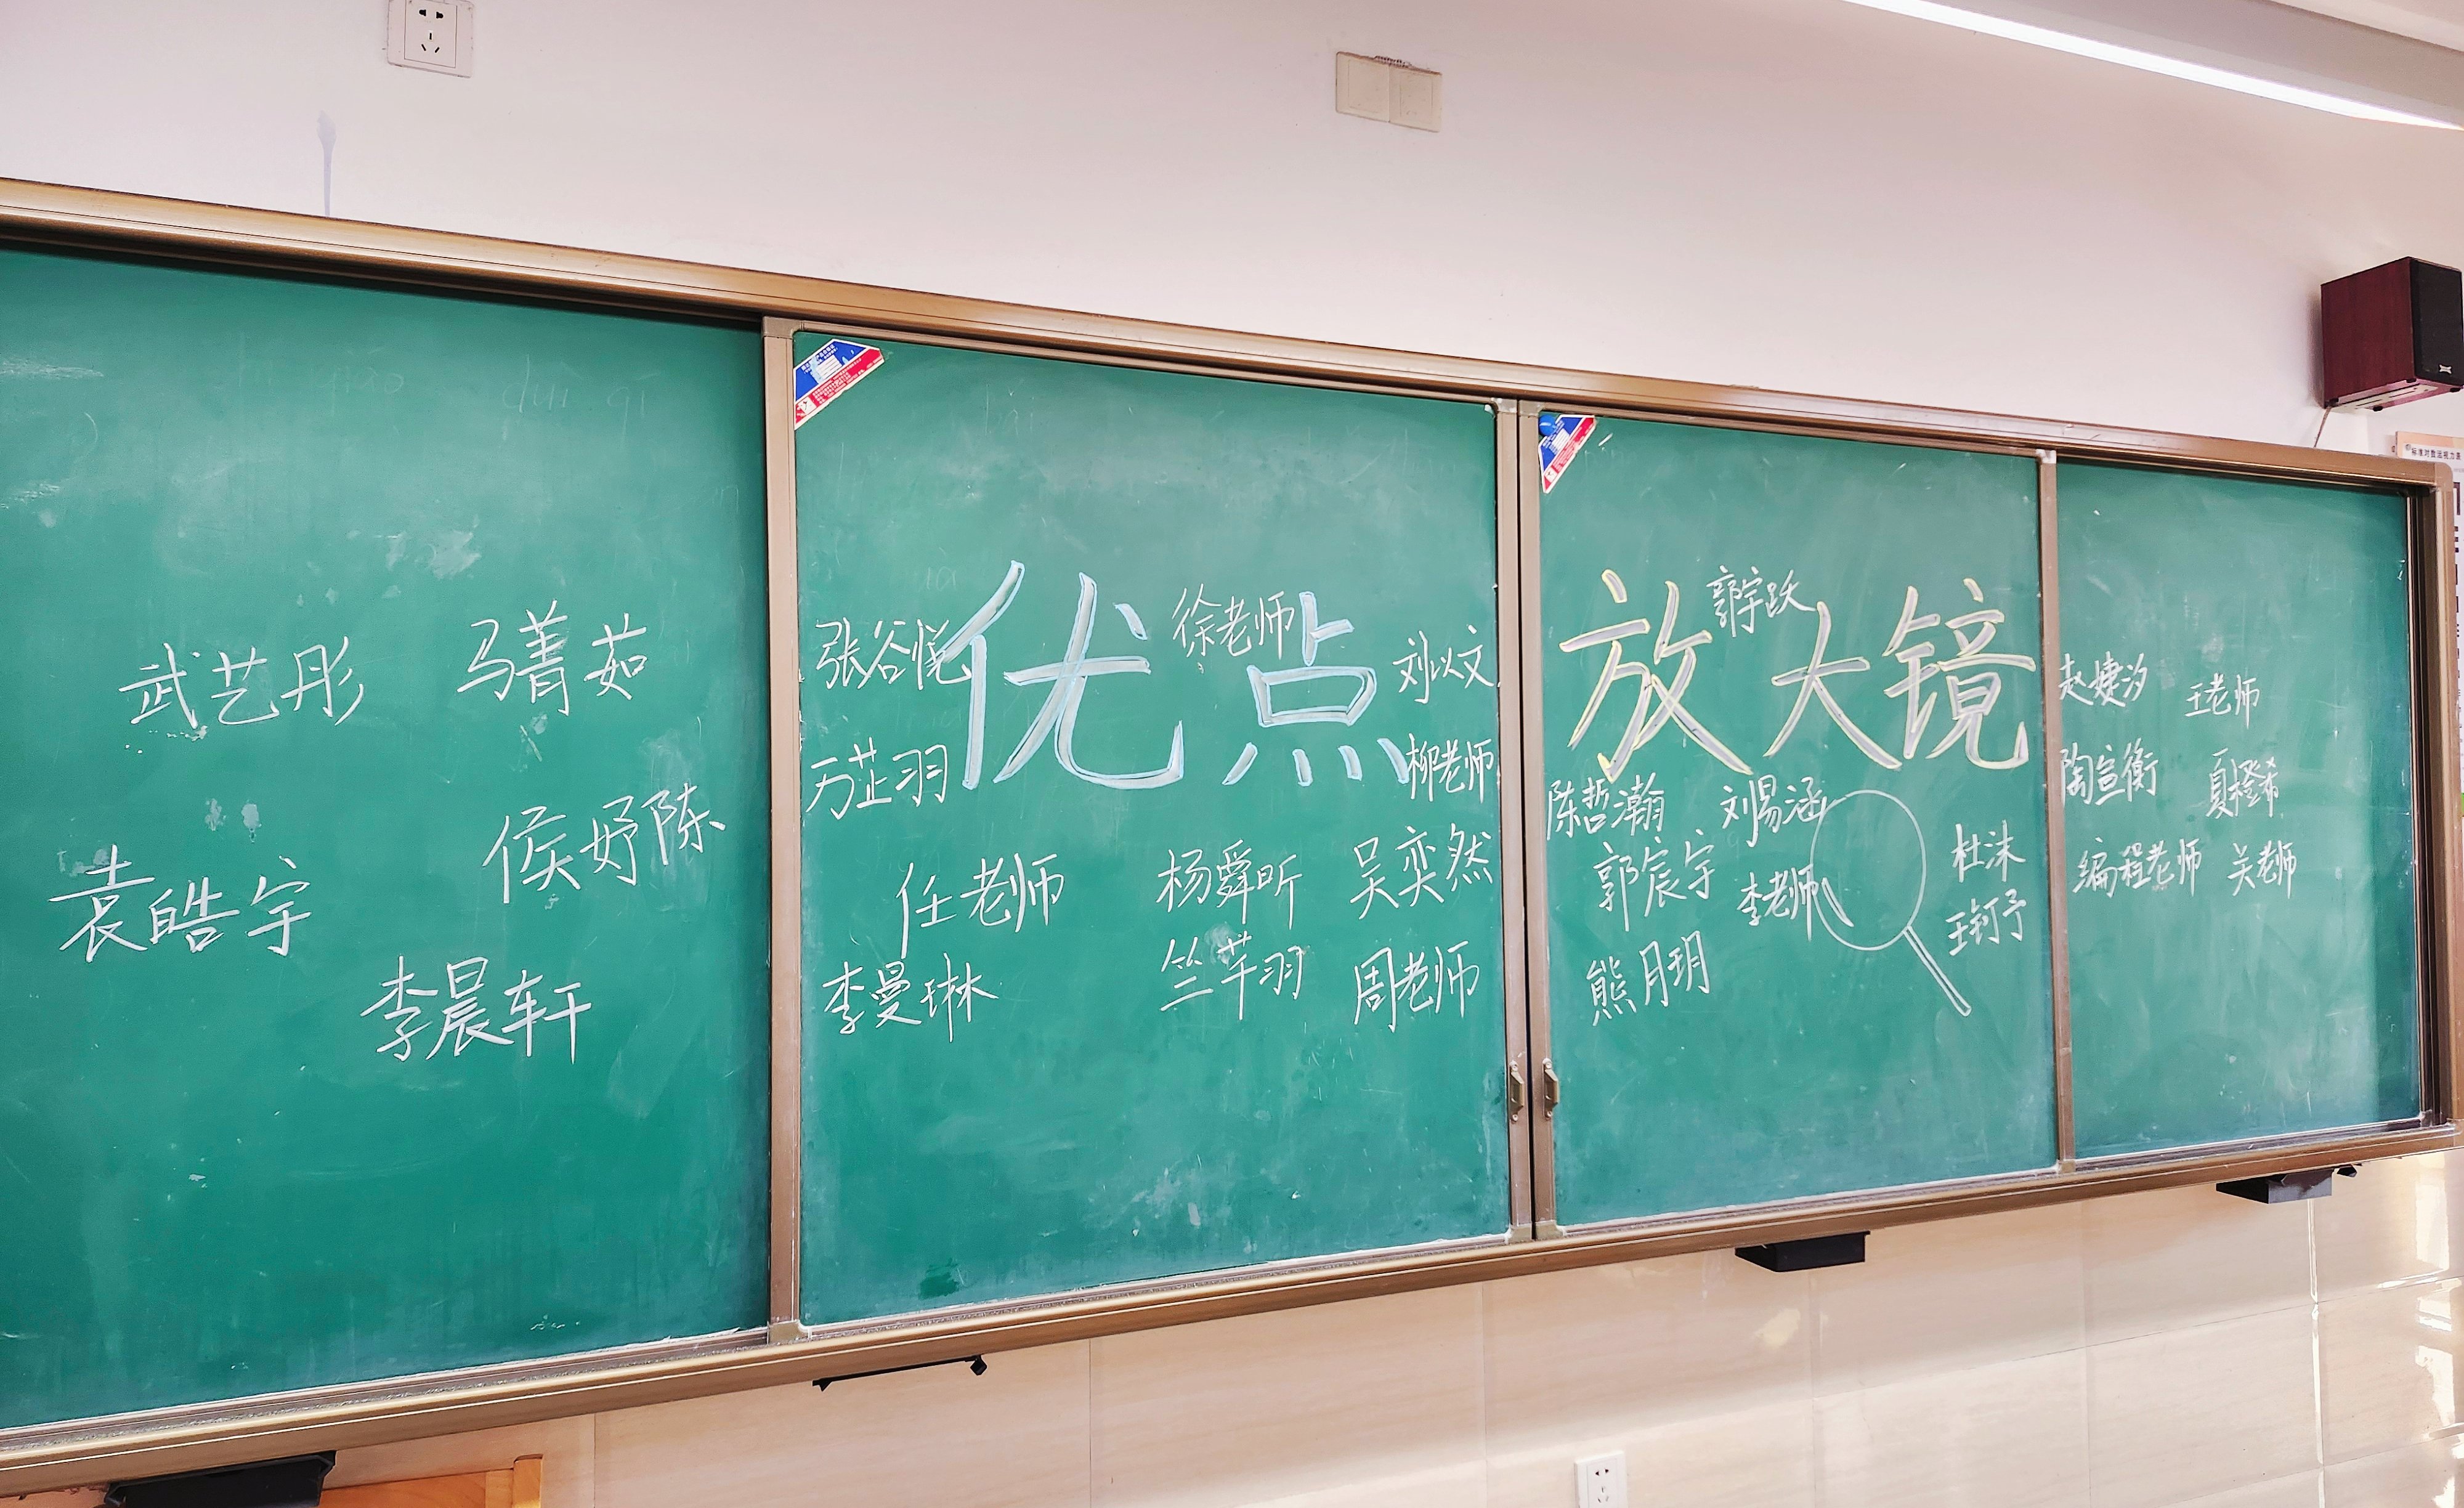 武艺彤
马菁茹
袁皓宇
侯妤陈
李晨轩
优点
张谷悦
徐老师
刘以文
万芷羽
柳老师
任老师
杨舜昕
吴奕然
李曼琳
竺芊羽
周老师
放大镜
郭宇跃
陈哲瀚
刘易涵
郭宸宇
李老师
杜沫
王钶予
熊月玥
赵婕汐
王老师
陶宣衡
夏橙希
编程老师
关老师
标准对数远视力表